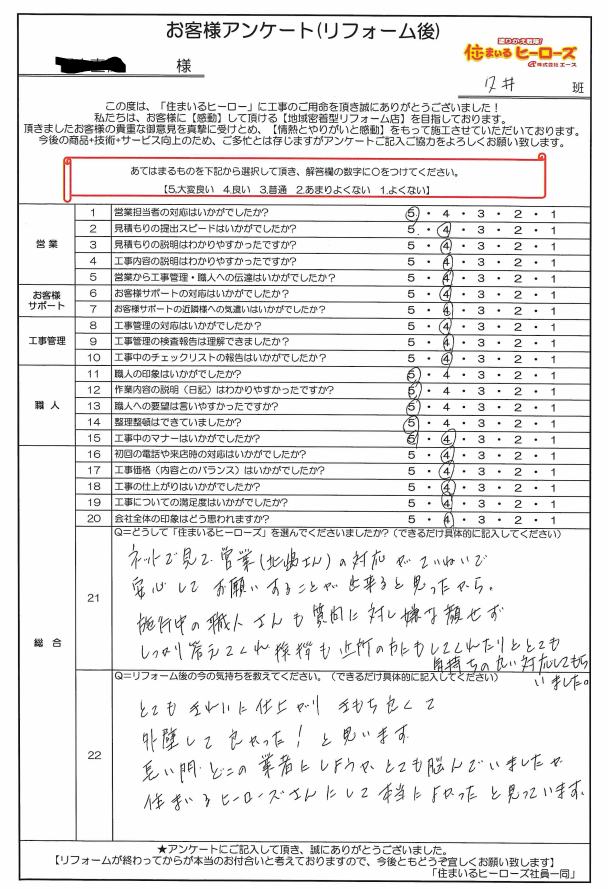 お客様アンケート(リフォーム後)
塗りかえ戦隊!
住まいるヒーローズ
株式会社エース
様
班
この度は、「住まいるヒーロー」に工事のご用命を頂き誠にありがとうございました！
私たちは、お客様に【感動】して頂ける【地域密着型リフォーム店】を目指しております。
頂きましたお客様の貴重な御意見を真摯に受けとめ、【情熱とやりがいと感動】をもって施工させていただいております。
今後の商品+技術+サービス向上のため、ご多忙とは存じますがアンケートご記入ご協力をよろしくお願い致します。
あてはまるものを下記から選択して頂き、解答欄の数字に○をつけてください。
【5.大変良い　4.良い　3.普通　2.あまりよくない　1.よくない】
営業
1 営業担当者の対応はいかがでしたか？ 5・4・3・2・1
2 見積もりの提出スピードはいかがでしたか？ 5・4・3・2・1
3 見積もりの説明はわかりやすかったですか？ 5・4・3・2・1
4 工事内容の説明はわかりやすかったですか？ 5・4・3・2・1
5 営業から工事管理・職人への伝達はいかがでしたか？ 5・4・3・2・1
お客様サポート
6 お客様サポートの対応はいかがでしたか？ 5・4・3・2・1
7 お客様サポートの近隣様への気遣いはいかがでしたか？ 5・4・3・2・1
工事管理
8 工事管理の対応はいかがでしたか？ 5・4・3・2・1
9 工事管理の検査報告は理解できましたか？ 5・4・3・2・1
10 工事中のチェックリストの報告はいかがでしたか？ 5・4・3・2・1
職人
11 職人の印象はいかがでしたか？ 5・4・3・2・1
12 作業内容の説明（日記）はわかりやすかったですか？ 5・4・3・2・1
13 職人への要望は言いやすかったですか？ 5・4・3・2・1
14 整理整頓はできていましたか？ 5・4・3・2・1
15 工事中のマナーはいかがでしたか？ 5・4・3・2・1
総合
16 初回の電話や来店時の対応はいかがでしたか？ 5・4・3・2・1
17 工事価格（内容とのバランス）はいかがでしたか？ 5・4・3・2・1
18 工事の仕上がりはいかがでしたか？ 5・4・3・2・1
19 工事についての満足度はいかがでしたか？ 5・4・3・2・1
20 会社全体の印象はどう思われますか？ 5・4・3・2・1
21
Q=どうして「住まいるヒーローズ」を選んでくださいましたか？（できるだけ具体的に記入してください）
ネットで見て営業(北嶋さん)の対応がていねいで
安心してお願いすることが出来ると思ったから。
施行中の職人さんも質問に対し嫌な顔せず
しっかり答えてくれ挨拶も近所の方にもしてくれたりととても
気持ちの良い対応してもらいました。
22
Q=リフォーム後の今の気持ちを教えてください。（できるだけ具体的に記入してください）
とてもきれいに仕上がり 気もち良くて
外壁して良かった！と思います
長い間、どこの業者にしようか、とても悩んでいましたが
住まいるヒーローズさんにして本当によかったと思っています。
★アンケートにご記入して頂き、誠にありがとうございました。
【リフォームが終わってからが本当のお付合いと考えておりますので、今後ともどうぞ宜しくお願い致します】
「住まいるヒーローズ社員一同」